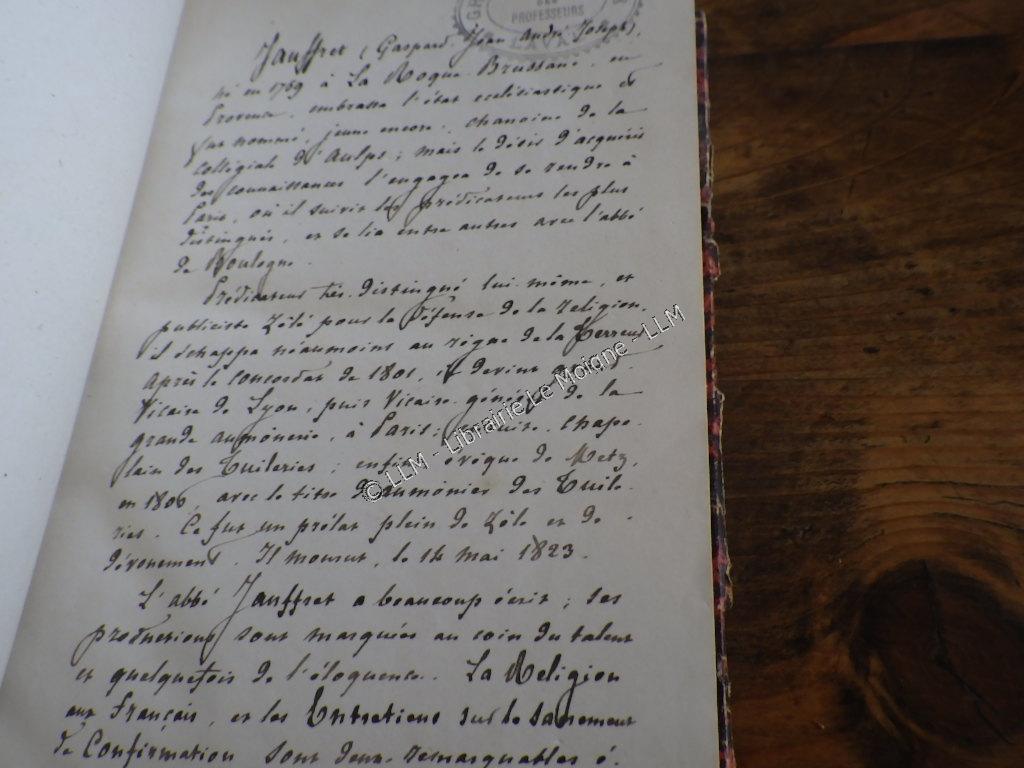 DES
PROFESSEURS
LAVAL
Jauffret (Gaspard. Jean André Joseph),
né en 1759 à La Roque Brussane, en
Provence, embrassa l'état ecclésiastique et
fut nommé, jeune encore, chanoine de la
collégiale d'Aulps; mais le désir d'acquérir
des connaissances l'engagea de se rendre à
Paris, où il suivit les prédicateurs les plus
distingués, et se lia entre autres avec l'abbé
de Boulogne.
Prédicateur très distingué lui-même, et
publiciste zélé pour la défense de la religion,
il échappa néaumoins au règne de la Terreur
Après le concordat de 1801, il devint
Vicaire de Lyon, puis Vicaire général de la
grande aumônerie, à Paris; ensuite, Chape-
lain des Tuileries; enfin évêque de Metz,
en 1806, avec le titre d'aumônier des Tuile-
ries. Ce fut un prélat plein de zèle et de
dévouement. Il mourut, le 12 mai 1823.
L'abbé Jauffret a beaucoup écrit; ses
productions sont marquées au coin du talent
et quelquefois de l'éloquence. La Religion
aux Français, et les Entretiens sur le sacrement
de Confirmation sont deux remarquables é-
© LLM - Librairie Le Moigne - LLM